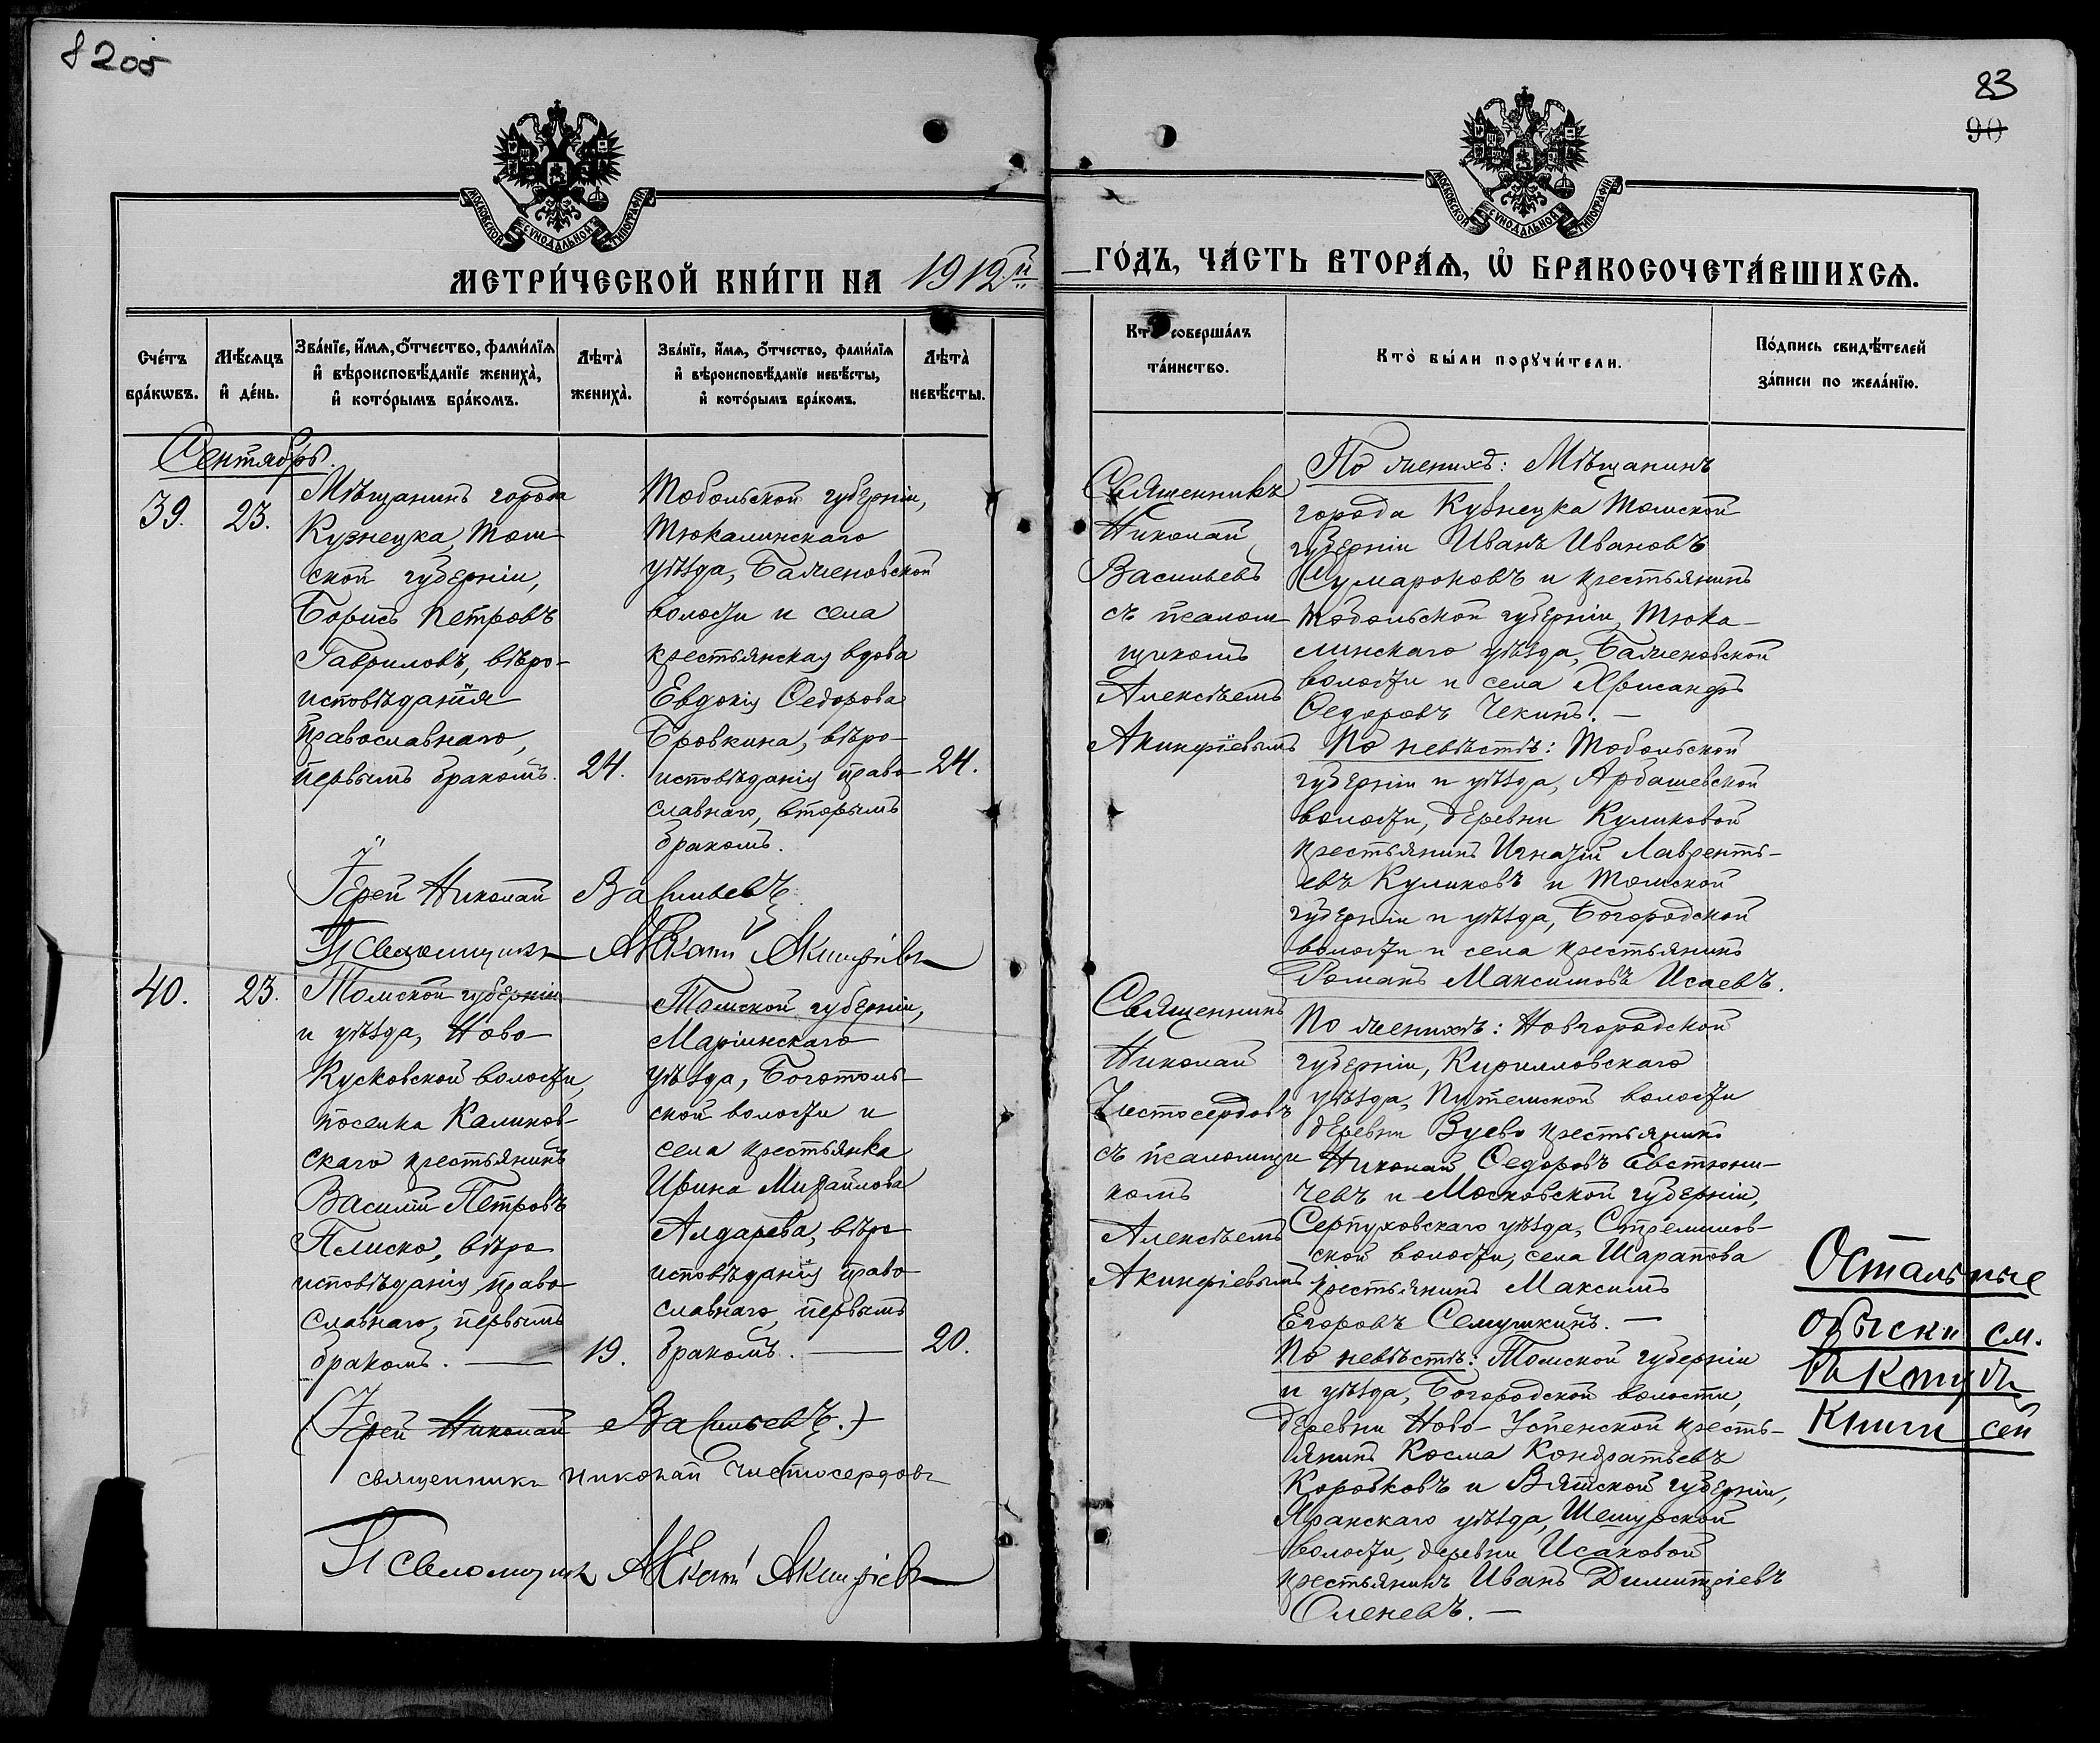 82об
83
90
МОСКОВСКОЙ СѴНОДАЛЬНОЙ ТИПОГРАФІИ
МОСКОВСКОЙ СѴНОДАЛЬНОЙ ТИПОГРАФІИ
МЕТРИ́ЧЕСКОЙ КНИ́ГИ НА 1912й
ГО́ДЪ, ЧА́СТЬ ВТОРА́Ѧ, Ѡ҆ БРАКОСОЧЕТА́ВШИХСѦ.
Сче́тъ
бра́кѡвъ.
Мѣ́сѧцъ
и҆ де́нь.
Зва́нїе, и҆́мѧ, ѻ҆́тчество, фами́лїѧ
и҆ вѣроисповѣ́данїе жениха̀,
и҆ кото́рымъ бра́комъ.
Лѣта̀
жениха̀.
Зва́нїе, и҆́мѧ, ѻ҆́тчество, фами́лїѧ
и҆ вѣроисповѣ́данїе невѣ́сты,
и҆ кото́рымъ бра́комъ.
Лѣта̀
невѣ́сты.
Кто̀ соверша́лъ
та́инство.
Кто̀ бы́ли порꙋчи́тели.
По́дпись свидѣ́телей
за́писи по жела́нїю.
Сентябрь.
39.
23.
Мѣщанинъ города
Кузнецка, Том-
ской губерніи,
Борисъ Петровъ
Гавриловъ, вѣро-
исповѣданія
православнаго,
первымъ бракомъ.
24.
Тобольской губерніи,
Тюкалинскаго
уѣзда, Баженовской
волости и села
крестьянская вдова
Евдокія Ѳедорова
Бровкина, вѣро-
исповѣданія право-
славнаго, вторымъ
бракомъ.
24.
Іерей Николай Васильевъ
Псаломщикъ Алексѣй Акинфіевъ
Священникъ
Николай
Васильевъ
съ псалом-
щикомъ
Алексѣемъ
Акинфіевымъ
По женихѣ: Мѣщанинъ
города Кузнецка Томской
губерніи Иванъ Ивановъ
Сумароковъ и крестьянинъ
Тобольской губерніи, Тюка-
линскаго уѣзда, Баженовской
волости и села Хрисанфъ
Ѳедоровъ Чекинъ. —
По невѣстѣ: Тобольской
губерніи и уѣзда, Арбашевской
волости, деревни Куликовой
крестьянинъ Игнатій Лаврентъ-
евъ Куликовъ и Томской
губерніи и уѣзда, Богородской
волости и села крестьянинъ
Романъ Максимовъ Исаевъ.
40.
23.
Томской губерніи
и уѣзда, Ново-
Кусковской волости,
поселка Калинов-
скаго крестьянинъ
Василій Петровъ
Плиско, вѣро-
исповѣданія право-
славнаго, первымъ
бракомъ. —
19.
Томской губерніи,
Маріинскаго
уѣзда, Боготоль-
ской волости и
села крестьянка
Ирина Михайлова
Алдарева, вѣро-
исповѣданія право-
славнаго, первымъ
бракомъ. —
20.
(Іерей Николай Васильевъ.)
священникъ Николай Чистосердовъ
Псаломщикъ Алексѣй Акинфіевъ
Священникъ
Николай
Чистосердовъ
съ псаломщи-
комъ
Алексѣемъ
Акинфіевымъ
По женихѣ: Новгородской
губерніи, Кирилловскаго
уѣзда, Путемской волости
деревни Зуево крестьянинъ
Николай Ѳедоровъ Евстюни-
чевъ и Московской губерніи,
Серпуховскаго уѣзда, Стремилов-
ской волости, села Шарапова
крестьянинъ Максимъ
Егоровъ Семушкинъ. —
По невѣстѣ: Томской губерніи
и уѣзда, Богородской волости,
деревни Ново-Успенской кресть-
янинъ Косма Кондратьевъ
Коробковъ и Вятской губерніи,
Яранскаго уѣзда, Шешурской
волости, деревни Исаковой
крестьянинъ Иванъ Димитріевъ
Оленевъ. —
Остальные
обыски см.
въ концѣ
книги сей